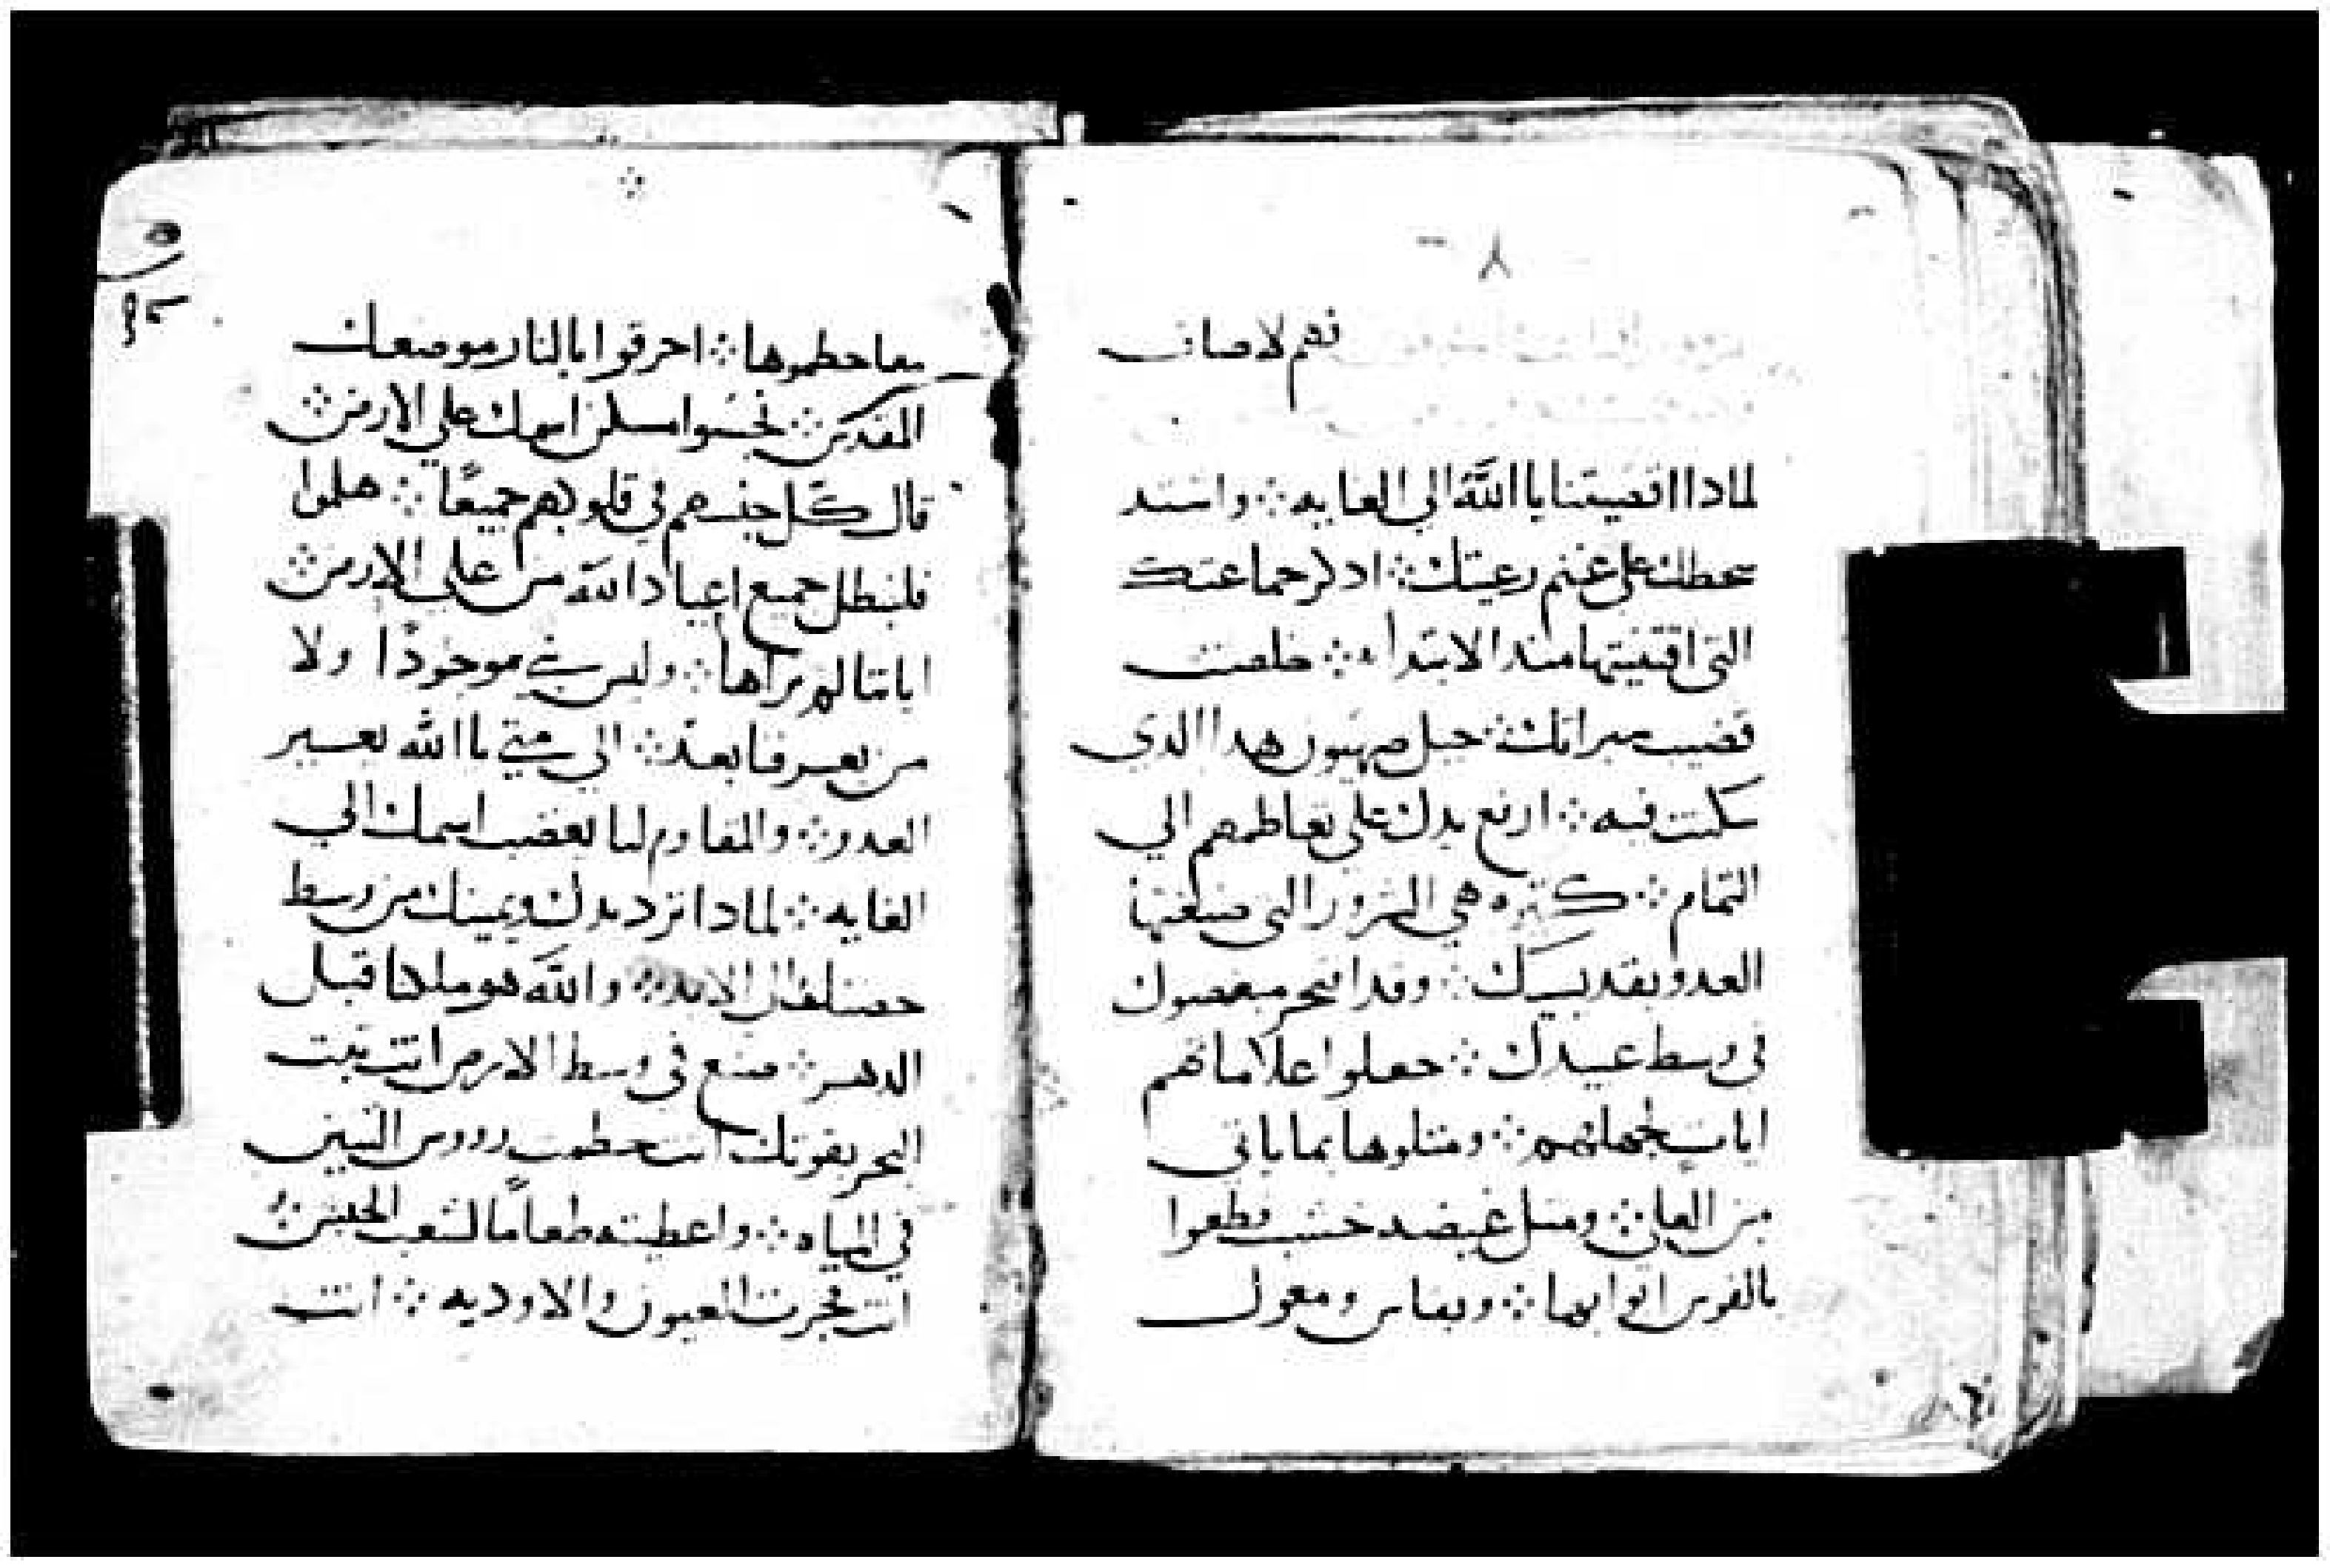 فهم لاصاف
لمادا اقصيتنا يا اللّه الي الغايه ⁘ واشتد
سخطك على غنم رعيتك ⁘ ادكر جماعتك
التي اقتنيتها مند الابتدا ⁘ خلصت
قضيب ميراثك ⁘ جبل صهيون هدا الدي
سكنت فيه ⁘ ارفع يدك على تعاظمهم الي
التمام ⁘ كتيره هي الشرور التي صنعها
العدو بقديسك ⁘ وقد افتخر مبغضوك
في وسط عبيدك ⁘ جعلوا علاماتهم
ايات بجهلهم ⁘ ومتلوها بما ياتي
من العلى ⁘ ومتل غيضه خشب قطعوا
بالفوس ابوابها ⁘ وبفاس ومعول
معا حطموها ⁘ احرقوا بالنار موضعك
المقدس ⁘ نجسوا مسكن اسمك علي الارض ⁘
قال كل جنسهم في قلوبهم جميعًا ⁘ هلموا
فلنبطل جميع اعياد اللّه من على الارض ⁘
اياتنا لم نراها ⁘ وليس نبي موجودًا ولا
من يعرفنا بعد ⁘ الي متي يا اللّه يعير
العدو ⁘ والمقاوم لنا يغضب اسمك الي
الغايه ⁘ لمادا ترد يدك ويمينك من وسط
حضنك الي الابد ⁘ واللّه هو ملكنا قبل
الدهر ⁘ صنع في وسط الارض انت تبت
البحر بقوتك انت حطمت رووس التنين
في المياه ⁘ واعطيته طعامًا لشعب الحبش ⁘
انت فجرت العيون والاوديه ⁘ انت